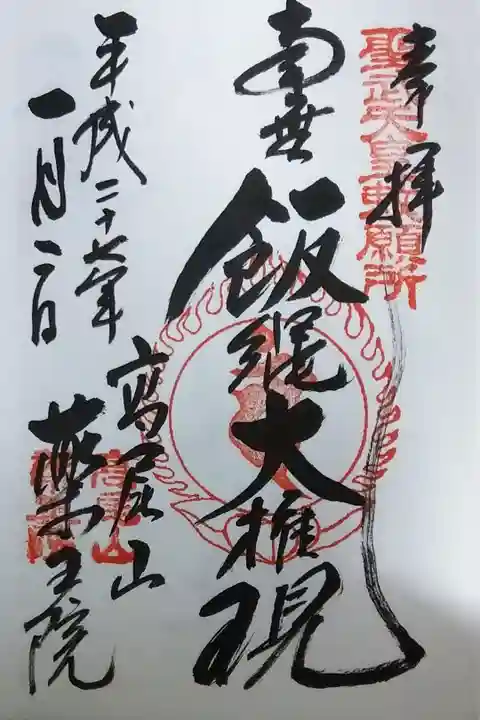 奉拝
聖武天皇勅願所
南無飯縄大権現
高尾山
薬王院
平成二十七年
一月二日